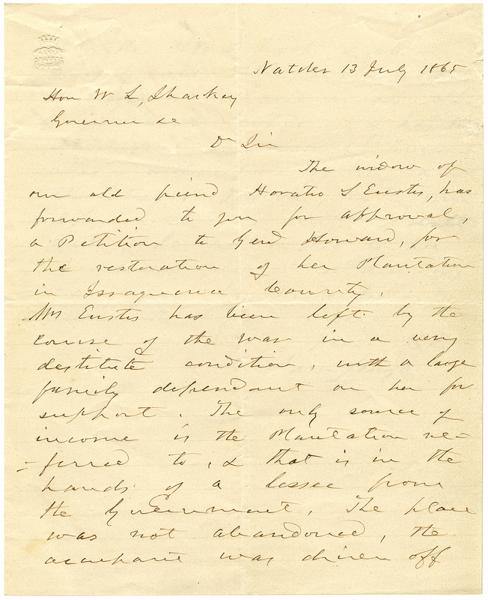 Natchez 13 July 1865
Hon W L Sharkey
Governor &c
Dr Sir
The widow of
our old friend Horatio S Eustis, has
forwarded to you for approval,
a Petition to Genl Howard, for
the restoration of her Plantation
in Issaquena County.
Mrs Eustis has been left by the
course of the war in a very
destitute condition, with a large
family dependant on her for
support. The only source of
income is the Plantation re=
=ferred to, & that is in the
hands of a lessee from
the Government. The place
was not abandoned, the
occupant was driven off